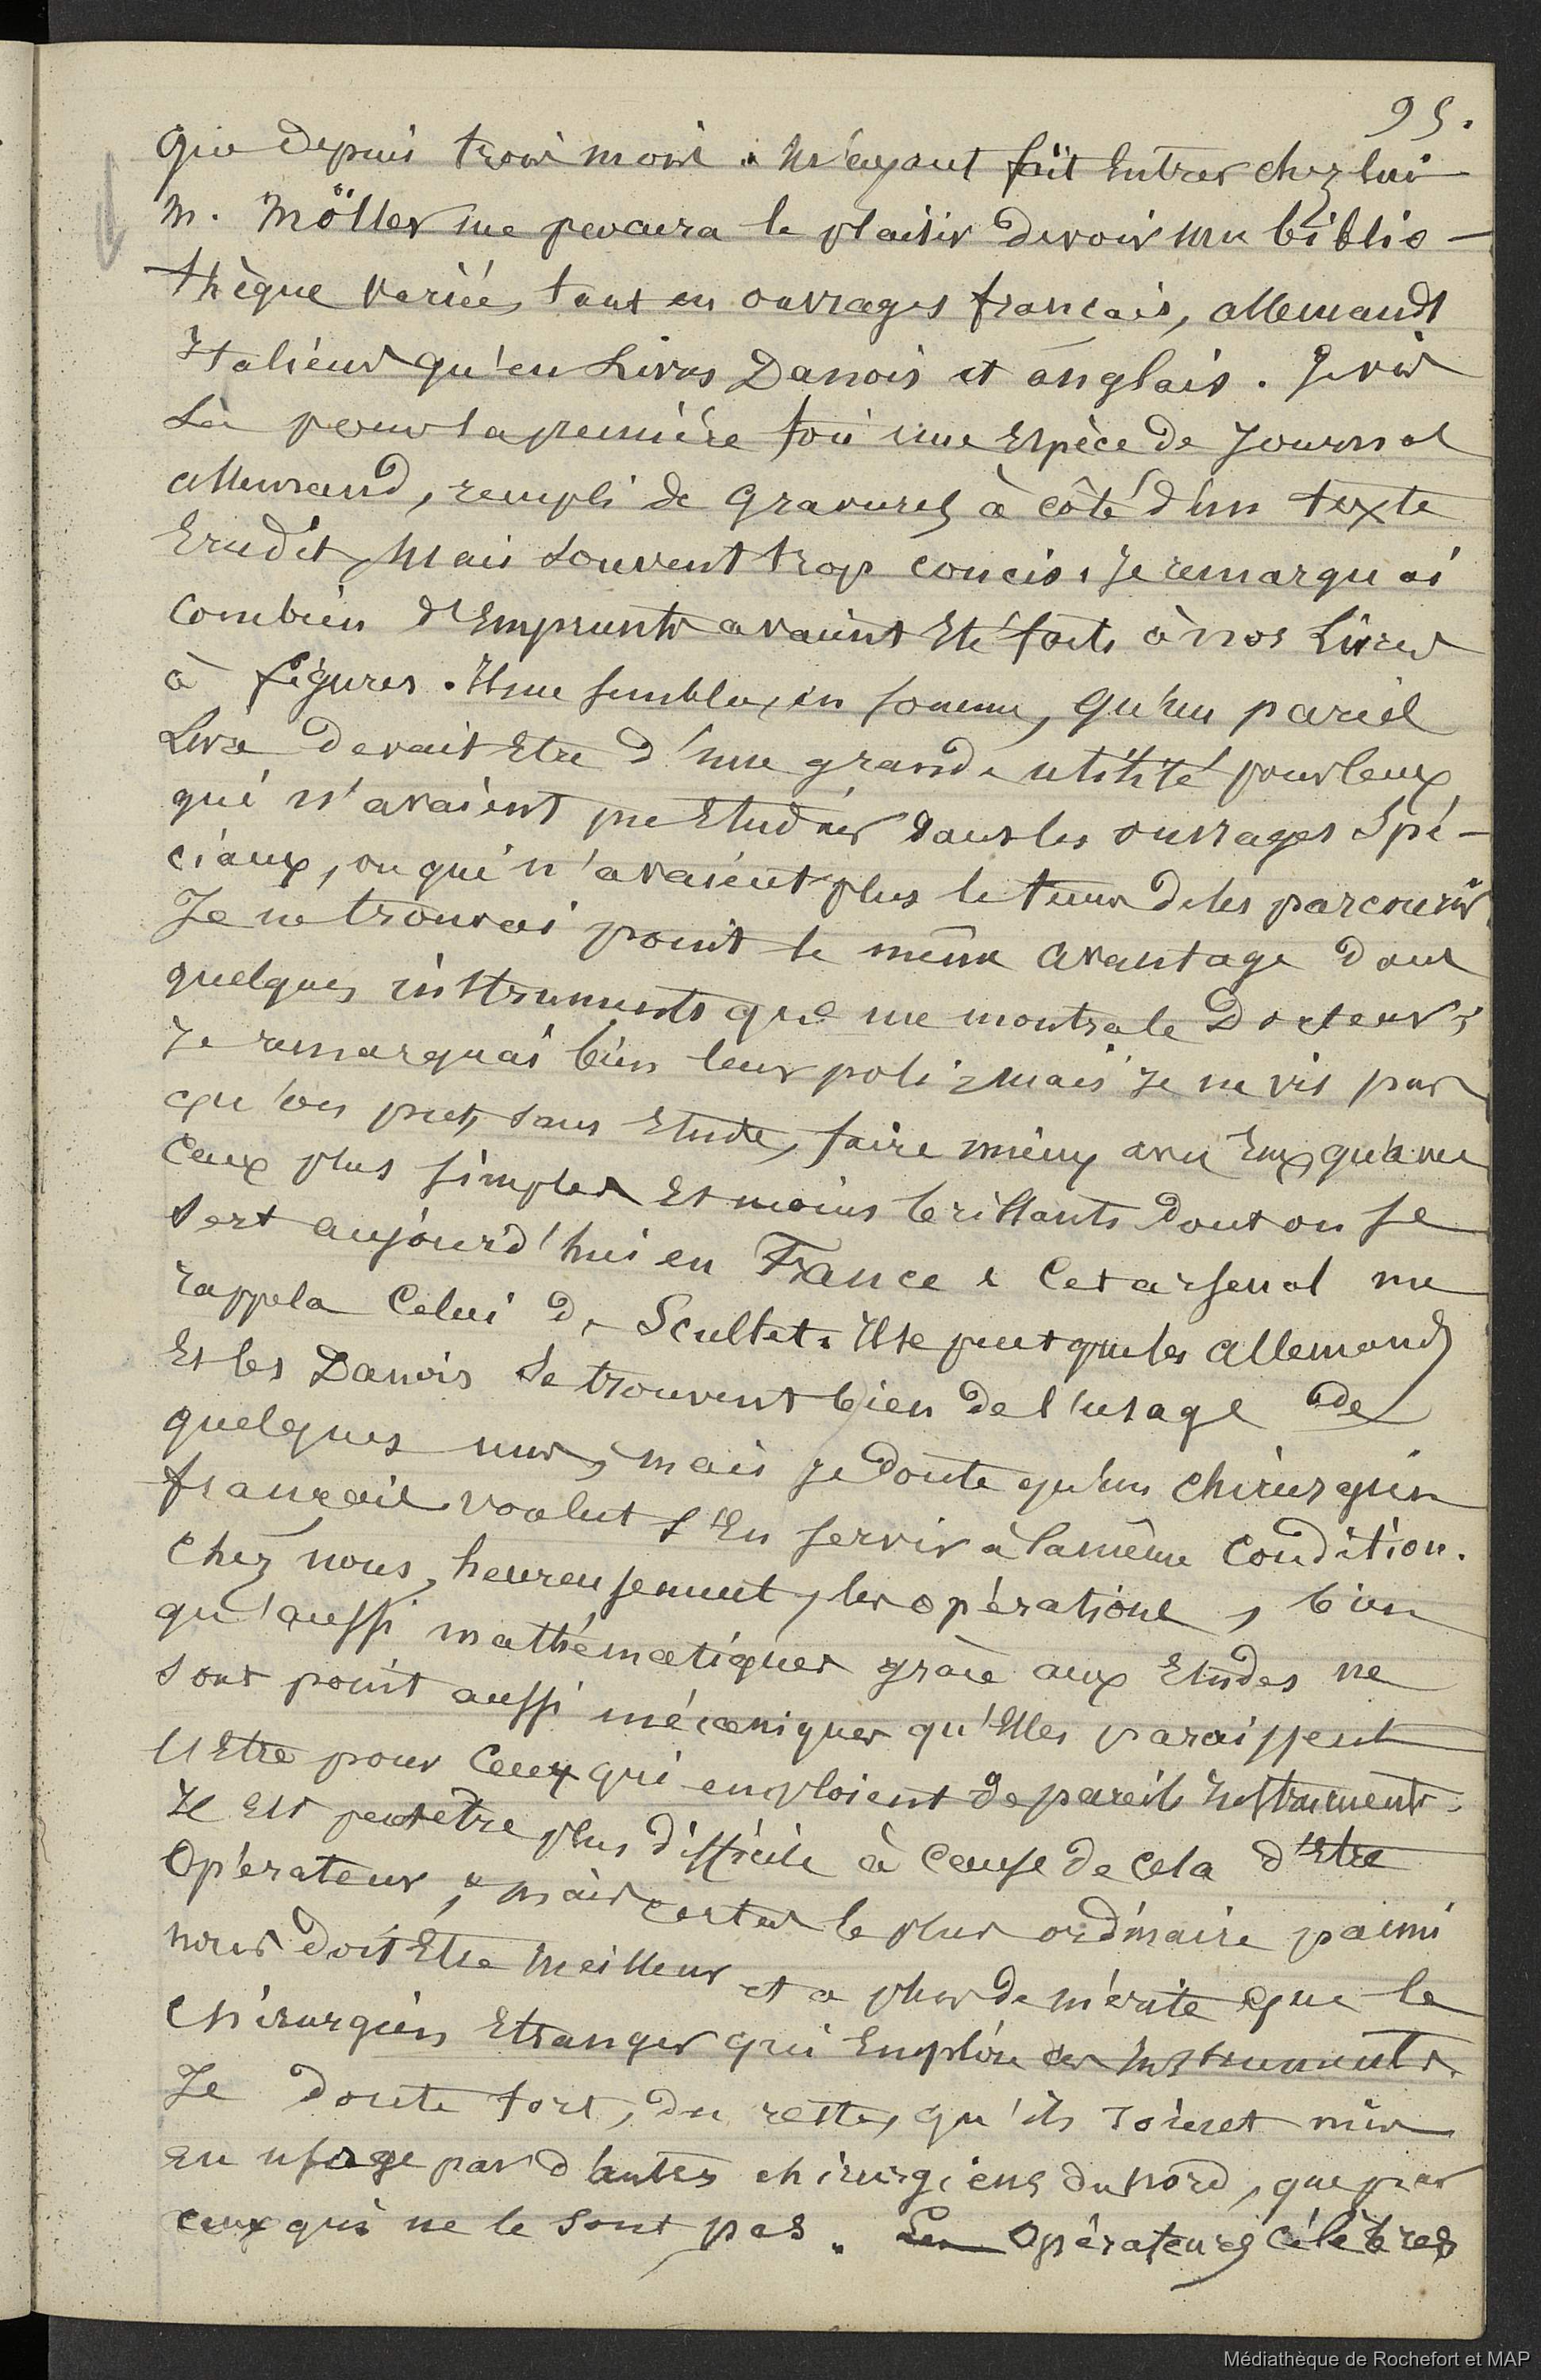 95.
que depuis trois mois. M'ayant fait Entrer chez lui
M. Möller me procura le plaisir de voir une biblio-
thèque variée, tant en ouvrages francais, allemands
Italiens qu'en Livres Danois et anglais. Je vis
Là pour la première fois une Espèce de Journal
allemand, rempli de Gravures à côté d'un texte
Erudit, Mais souvent trop concis. Je remarquai
Combien d'Emprunts avaient Eté faits à nos Livres
à figures. Il me sembla, en somme, qu'un pareil
Livre devait Etre d'une grande utilité pour Ceux
qui n'avaient pu Etudier dans les ouvrages Spé-
ciaux, ou qui n'avaient plus le tems de les parcourir.
Je ne trouvai point le même avantage dans
quelques instruments que me montra le Docteur;
Je remarquai bien leur poli; mais je ne vis pas
qu'on put, sans Etude, faire mieux avec Eux qu'avec
Ceux plus simples Et moins brillants dont on se
sert aujourd'hui en France. Cet arsenal me
rappela Celui de Scultet. Il se peut que les Allemands
Et les Danois se trouvent bien de l'usage de
quelques uns, mais je doute qu'un Chirurgien
francais voulut s'En servir à la même Condition.
Chez nous, heureusement, les opérations, bien
qu'aussi mathématiques grâce aux Etudes ne
sont point aussi mécaniques qu'Elles paraissent
l'Etre pour Ceux qui emploient de pareils Instruments.
Il est peut être plus difficile à Cause de Cela d'Etre
Opérateur, mais certes le plus ordinaire parmi
nous doit Etre Meilleur et a plus de mérite que le
Chirurgien Etranger qui Emploie ces Instruments.
Je doute fort, du reste, qu'ils soient mis
en usage par d'autres chirurgiens du Nord, que par
ceux qui ne le sont pas. Les Opérateurs Célèbres
Médiathèque de Rochefort et MAP